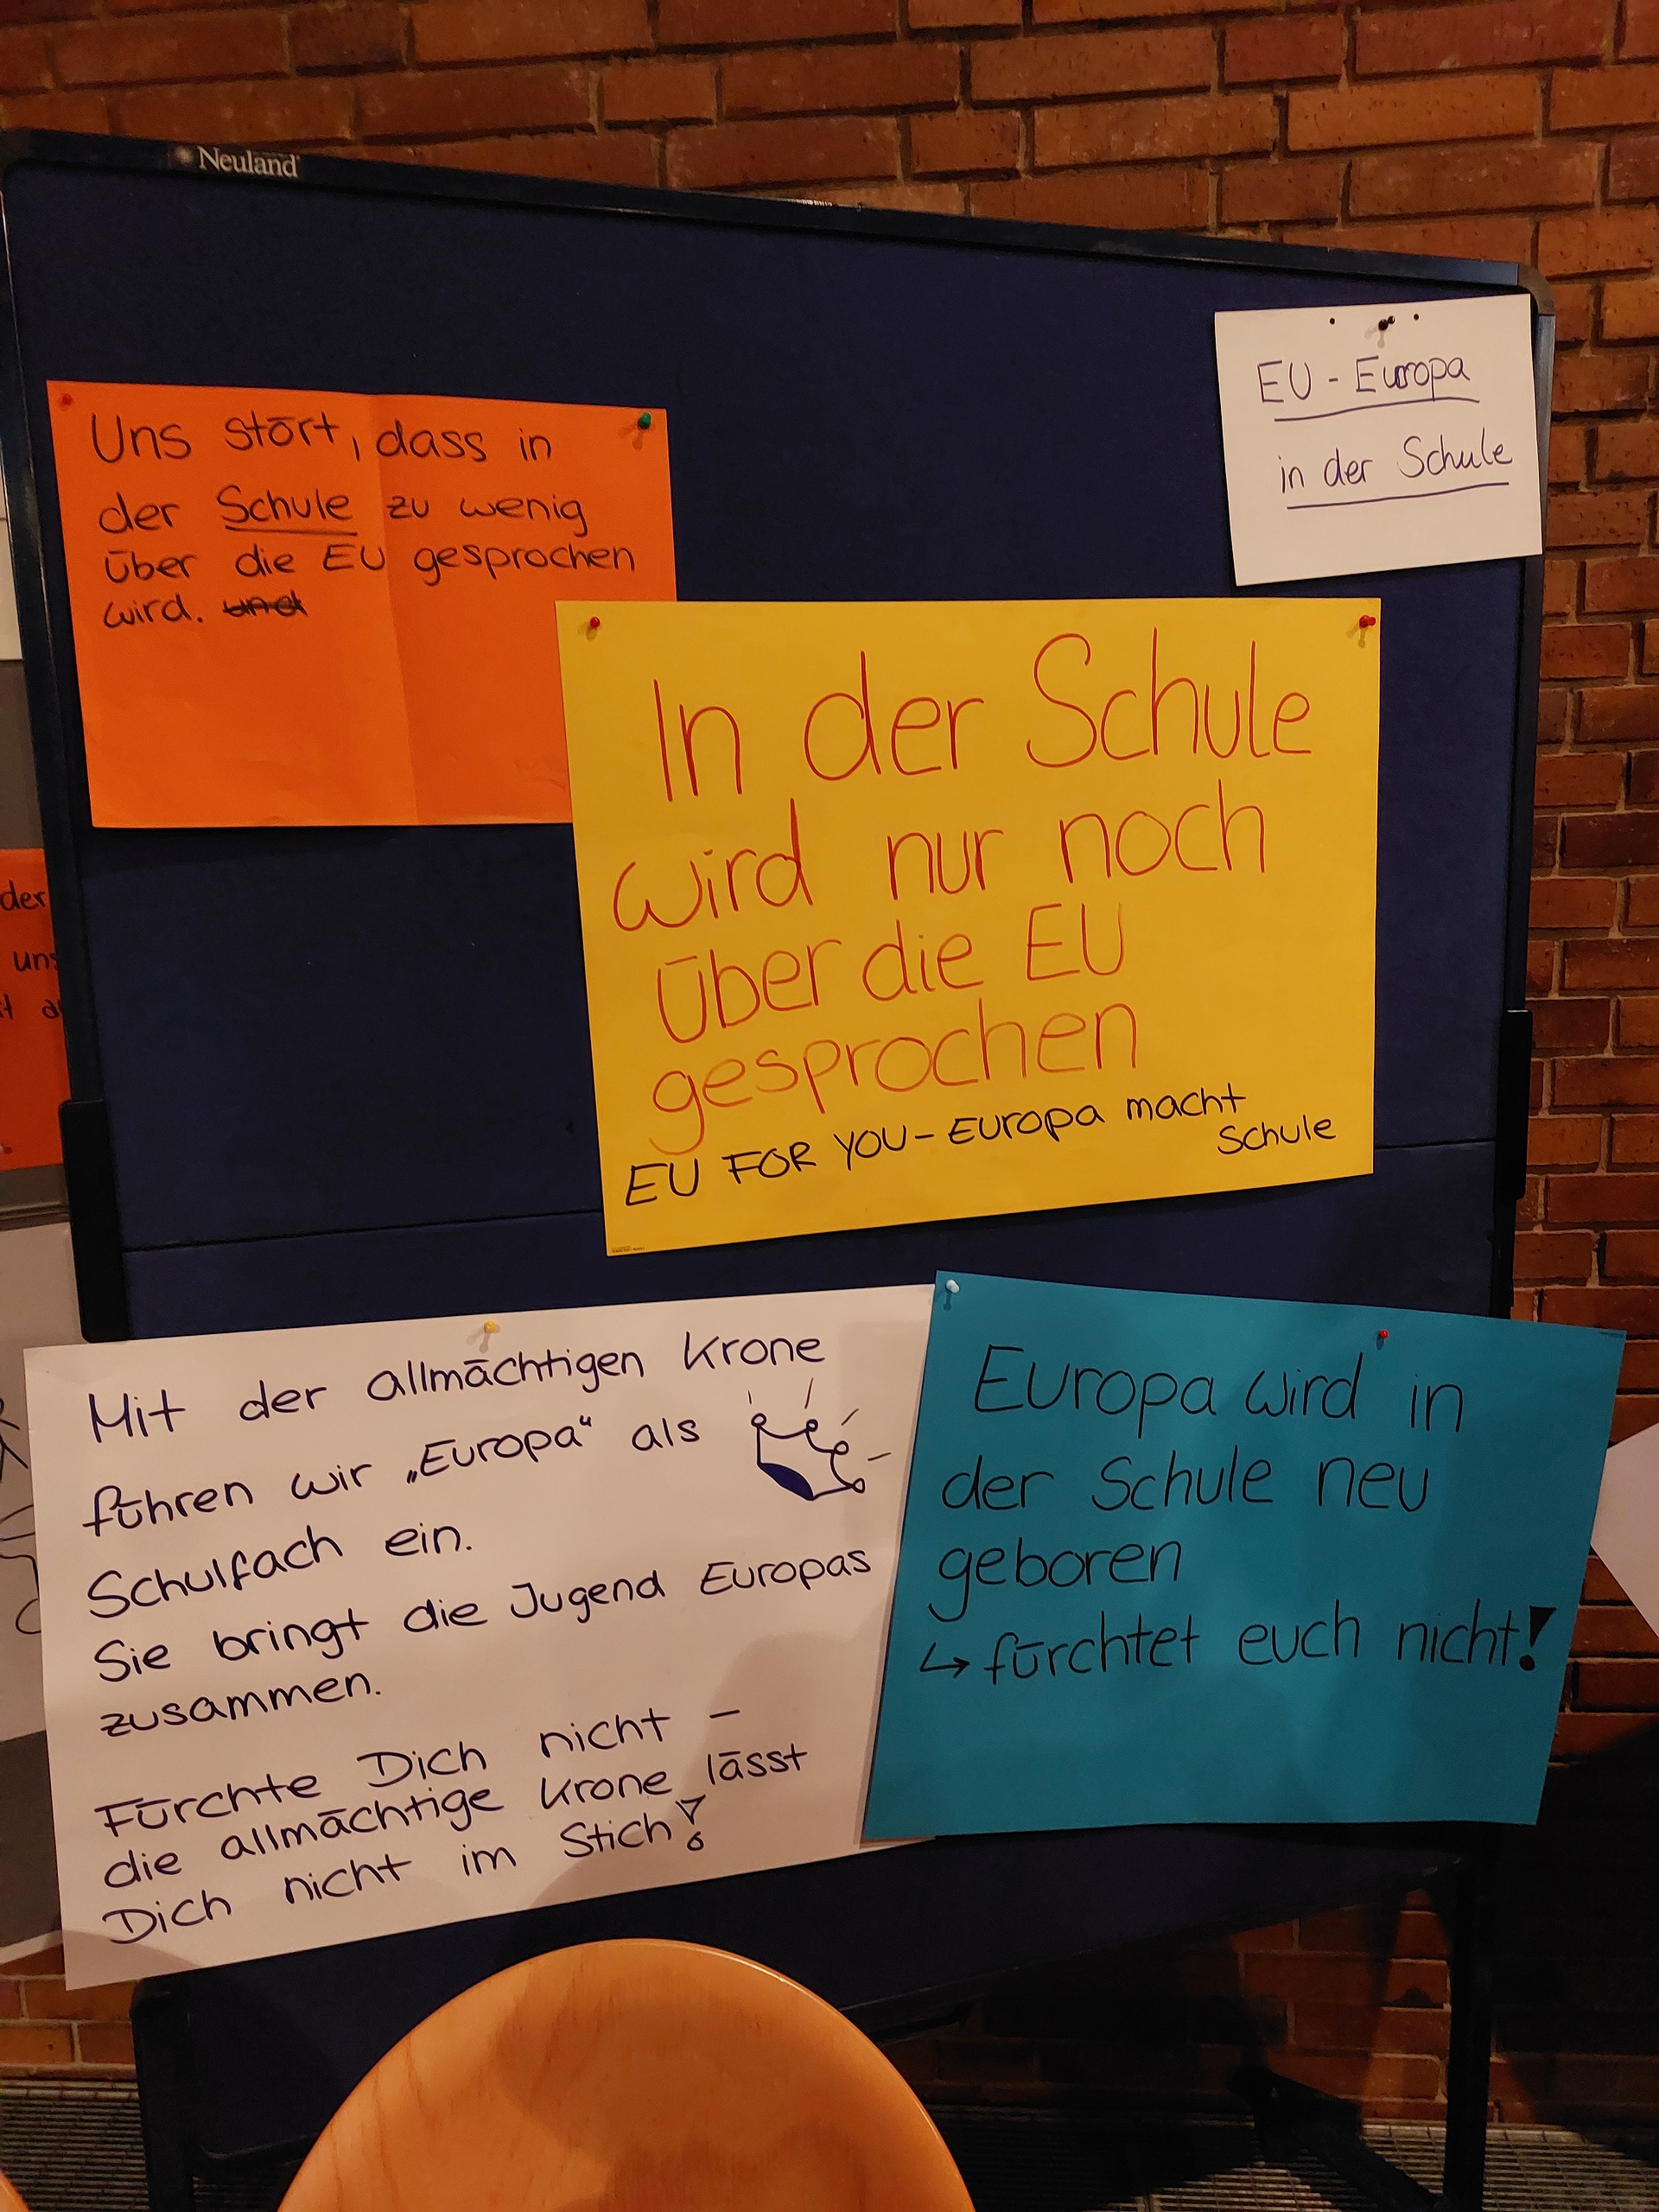 Neuland
EU - Europa
in der Schule
Uns stört, dass in
der Schule zu wenig
über die EU gesprochen
wird. und
In der Schule
wird nur noch
über die EU
gesprochen
EU FOR YOU - Europa macht
Schule
der
uns
Mit der allmächtigen Krone
führen wir „Europa“ als
Schulfach ein.
Sie bringt die Jugend Europas
zusammen.
Fürchte Dich nicht –
die allmächtige Krone lässt
Dich nicht im Stich!
Europa wird in
der Schule neu
geboren
↳ fürchtet euch nicht!